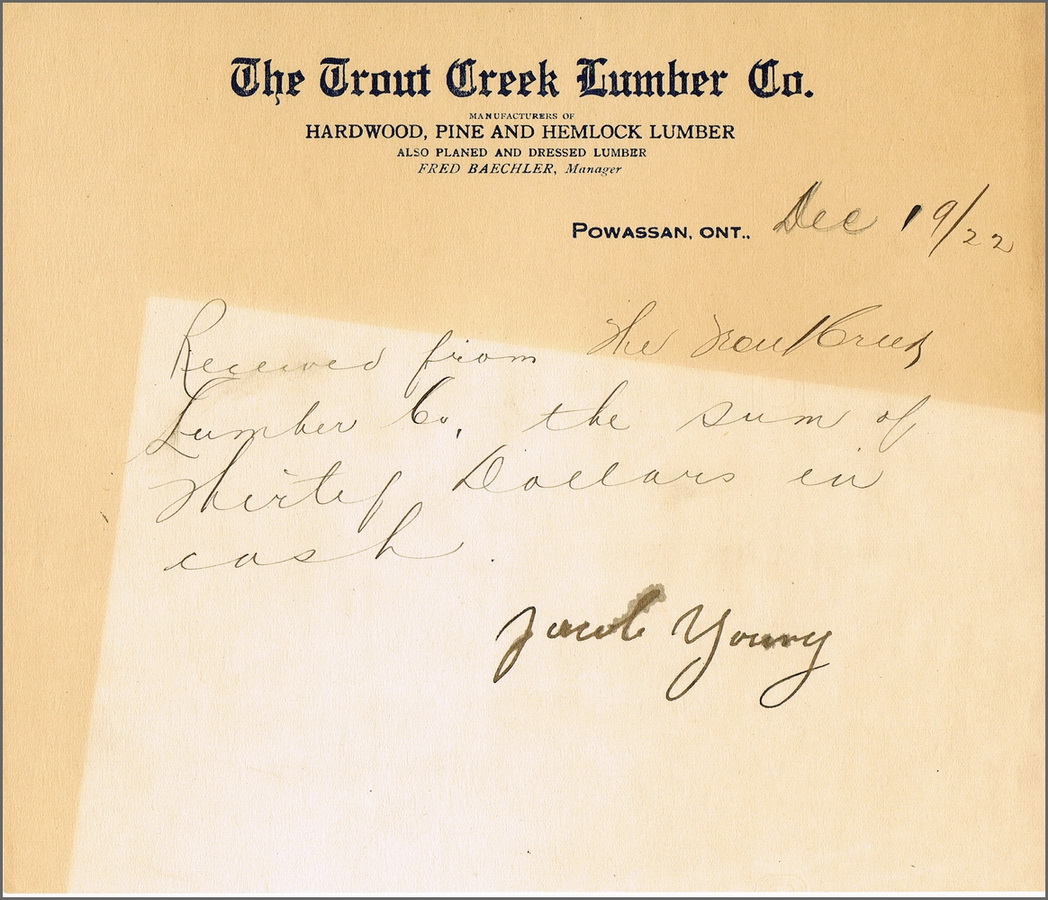 The Trout Creek Lumber Co.
MANUFACTURERS OF
HARDWOOD, PINE AND HEMLOCK LUMBER
ALSO PLANED AND DRESSED LUMBER
FRED BAECHLER, Manager
POWASSAN, ONT.. Dec 19/22
Received from The Trout Creek
Lumber Co, the sum of
Thirty Dollars in
cash.
Jacob Young